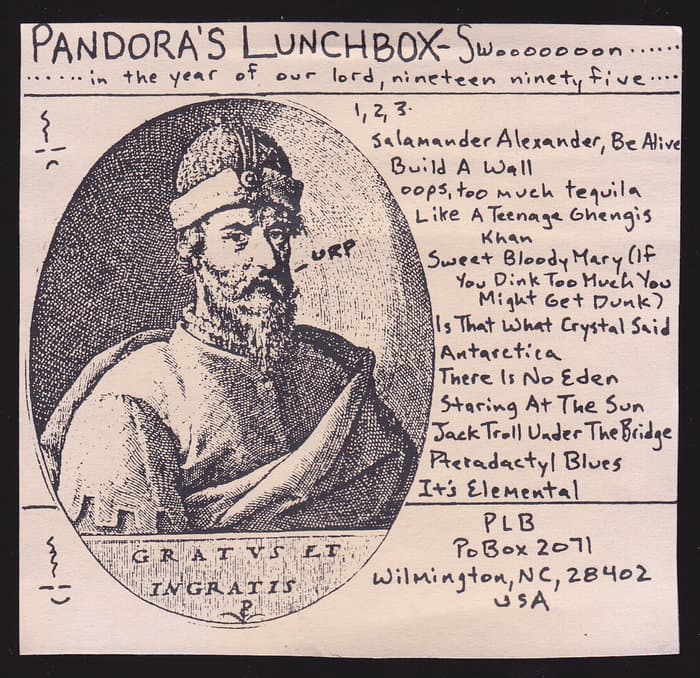 PANDORA'S LUNCHBOX-Swooooooon......
......in the year of our lord, nineteen ninety five....
1, 2, 3.
Salamander Alexander, Be Alive
Build A Wall
oops, too much tequila
Like A Teenage Ghengis
Khan
Sweet Bloody Mary (If
You Dink Too Much You
Might Get Dunk)
Is That What Crystal Said
Antarctica
There Is No Eden
Staring At The Sun
Jack Troll Under The Bridge
Pteradactyl Blues
It's Elemental
URP
GRATVS ET
INGRATIS
P
PLB
PoBox 2071
Wilmington, NC, 28402
USA